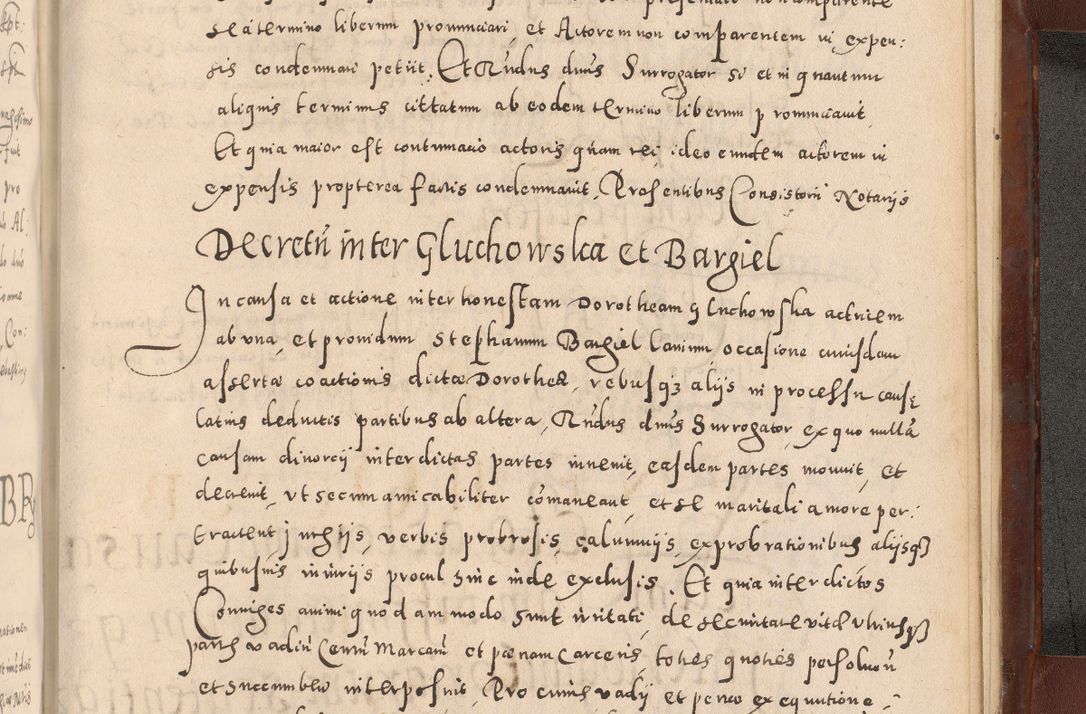 se à termino liberum pronunciari, et Actorem non comparentem in expen:
sis condemnari petiit. Et Rndus dnus Surrogator si et in quantum
aliquis terminus cittatum ab eodem termino liberum pronunciavit
Et quia maior est contumacio actoris quam rei ideo eundem actorem in
expensis propterea factis condemnavit. Presentibus Consistorii Notarijs
Decretu inter Gluchowska et Bargiel
In causa et actione inter honestam Dorotheam Gluchowska actricem
ab una, et providum Stephanum Bargiel Lanium occasione cuiusdam
assertæ coactionis dictæ Dorotheæ, rebusq3 alijs in processu causę
latius deductis partibus ab altera, Rndus dnus Surrogator ex quo nullã
causam divorcij inter dictas partes invenit, easdem partes monuit, et
decrevit, ut secum amicabiliter cõmaneant, et se maritali amore per:
tractent iurgijs, verbis probrosis, calumnijs, exprobrationibus alijsq3
quibusvis iniurijs procul hinc inde exclusis. Et quia inter dictos
Coniuges animi quodammodo sunt irritati, de securitate vitæ utriusq3
partis vadiũ Centũ Marcarũ et pœnam Carceris toties quoties persolven
et succumben interposuit. Pro cuius vadij et penæ exequutione